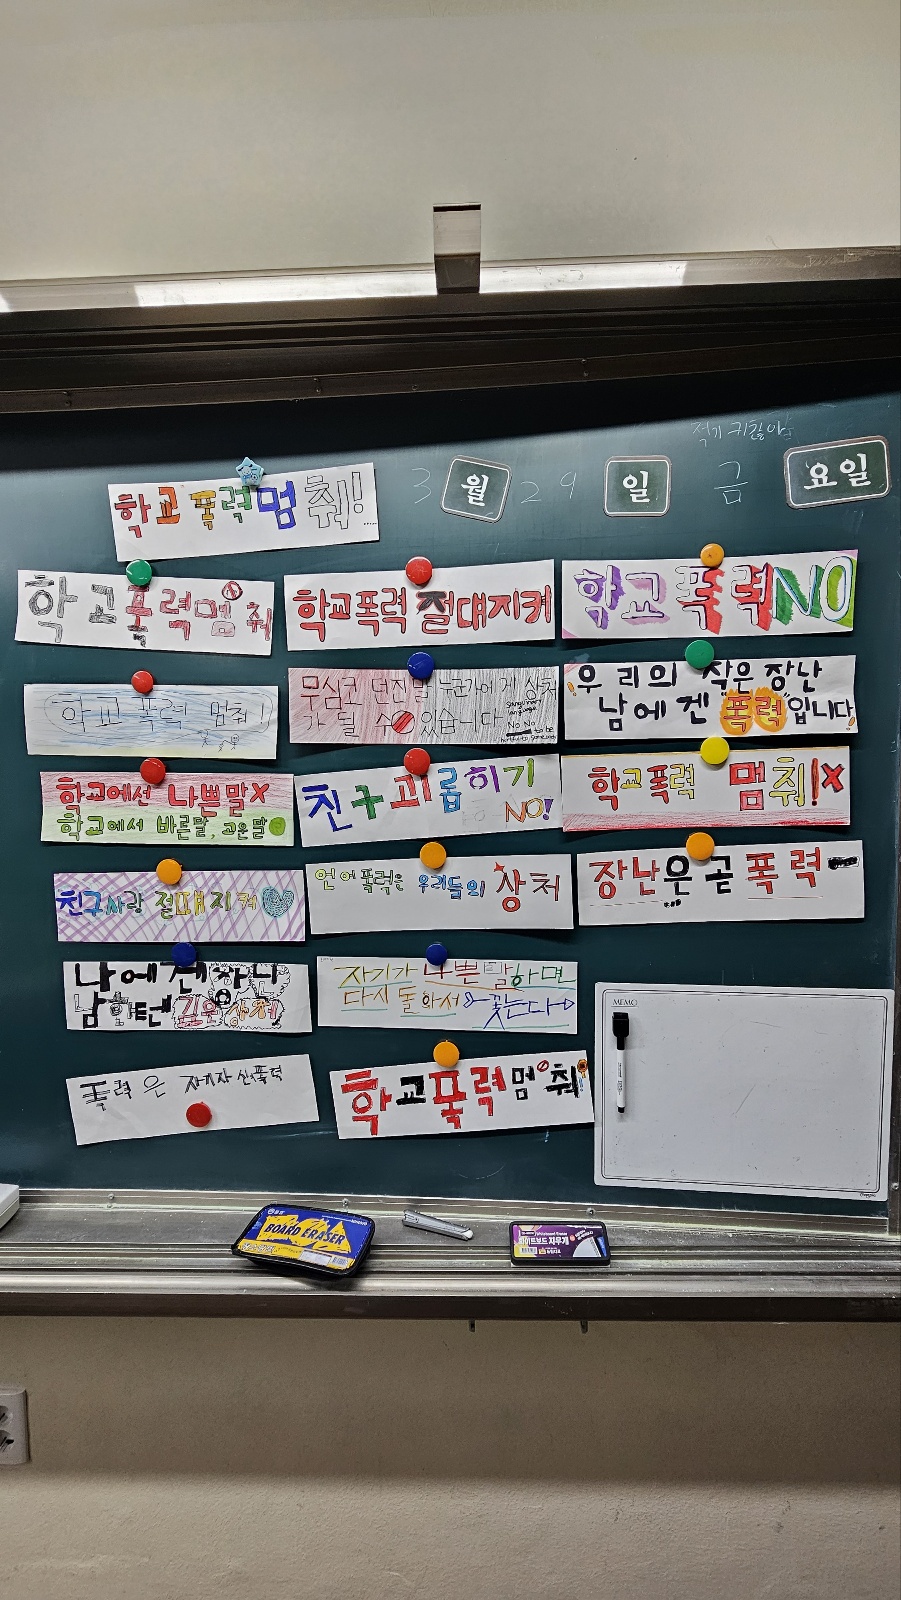 3 월 29 일 금 요일
학교폭력멈춰!....
학교폭력멈춰
학교폭력 절대지켜
학교폭력NO
학교 폭력 멈춰!
무심코 던진말 누군가에게 상처
가 될 수 있습니다
No No
to be
우리의 작은 장난
남에겐 "폭력"입니다!
학교에선 나쁜말X
학교에서 바른말, 고운말
친구괴롭히기
NO!
학교폭력 멈춰!X
친구사랑 절대지켜
언어폭력은 우리들의 상처
장난은 곧 폭력
나에겐 장난
남한텐 깊은 상처
자기가 나쁜말하면
다시 돌아서 꽂는다
폭력은 자기자신폭력
학교폭력멈춰!
MEMO
BOARD ERASER
화이트보드 지우개